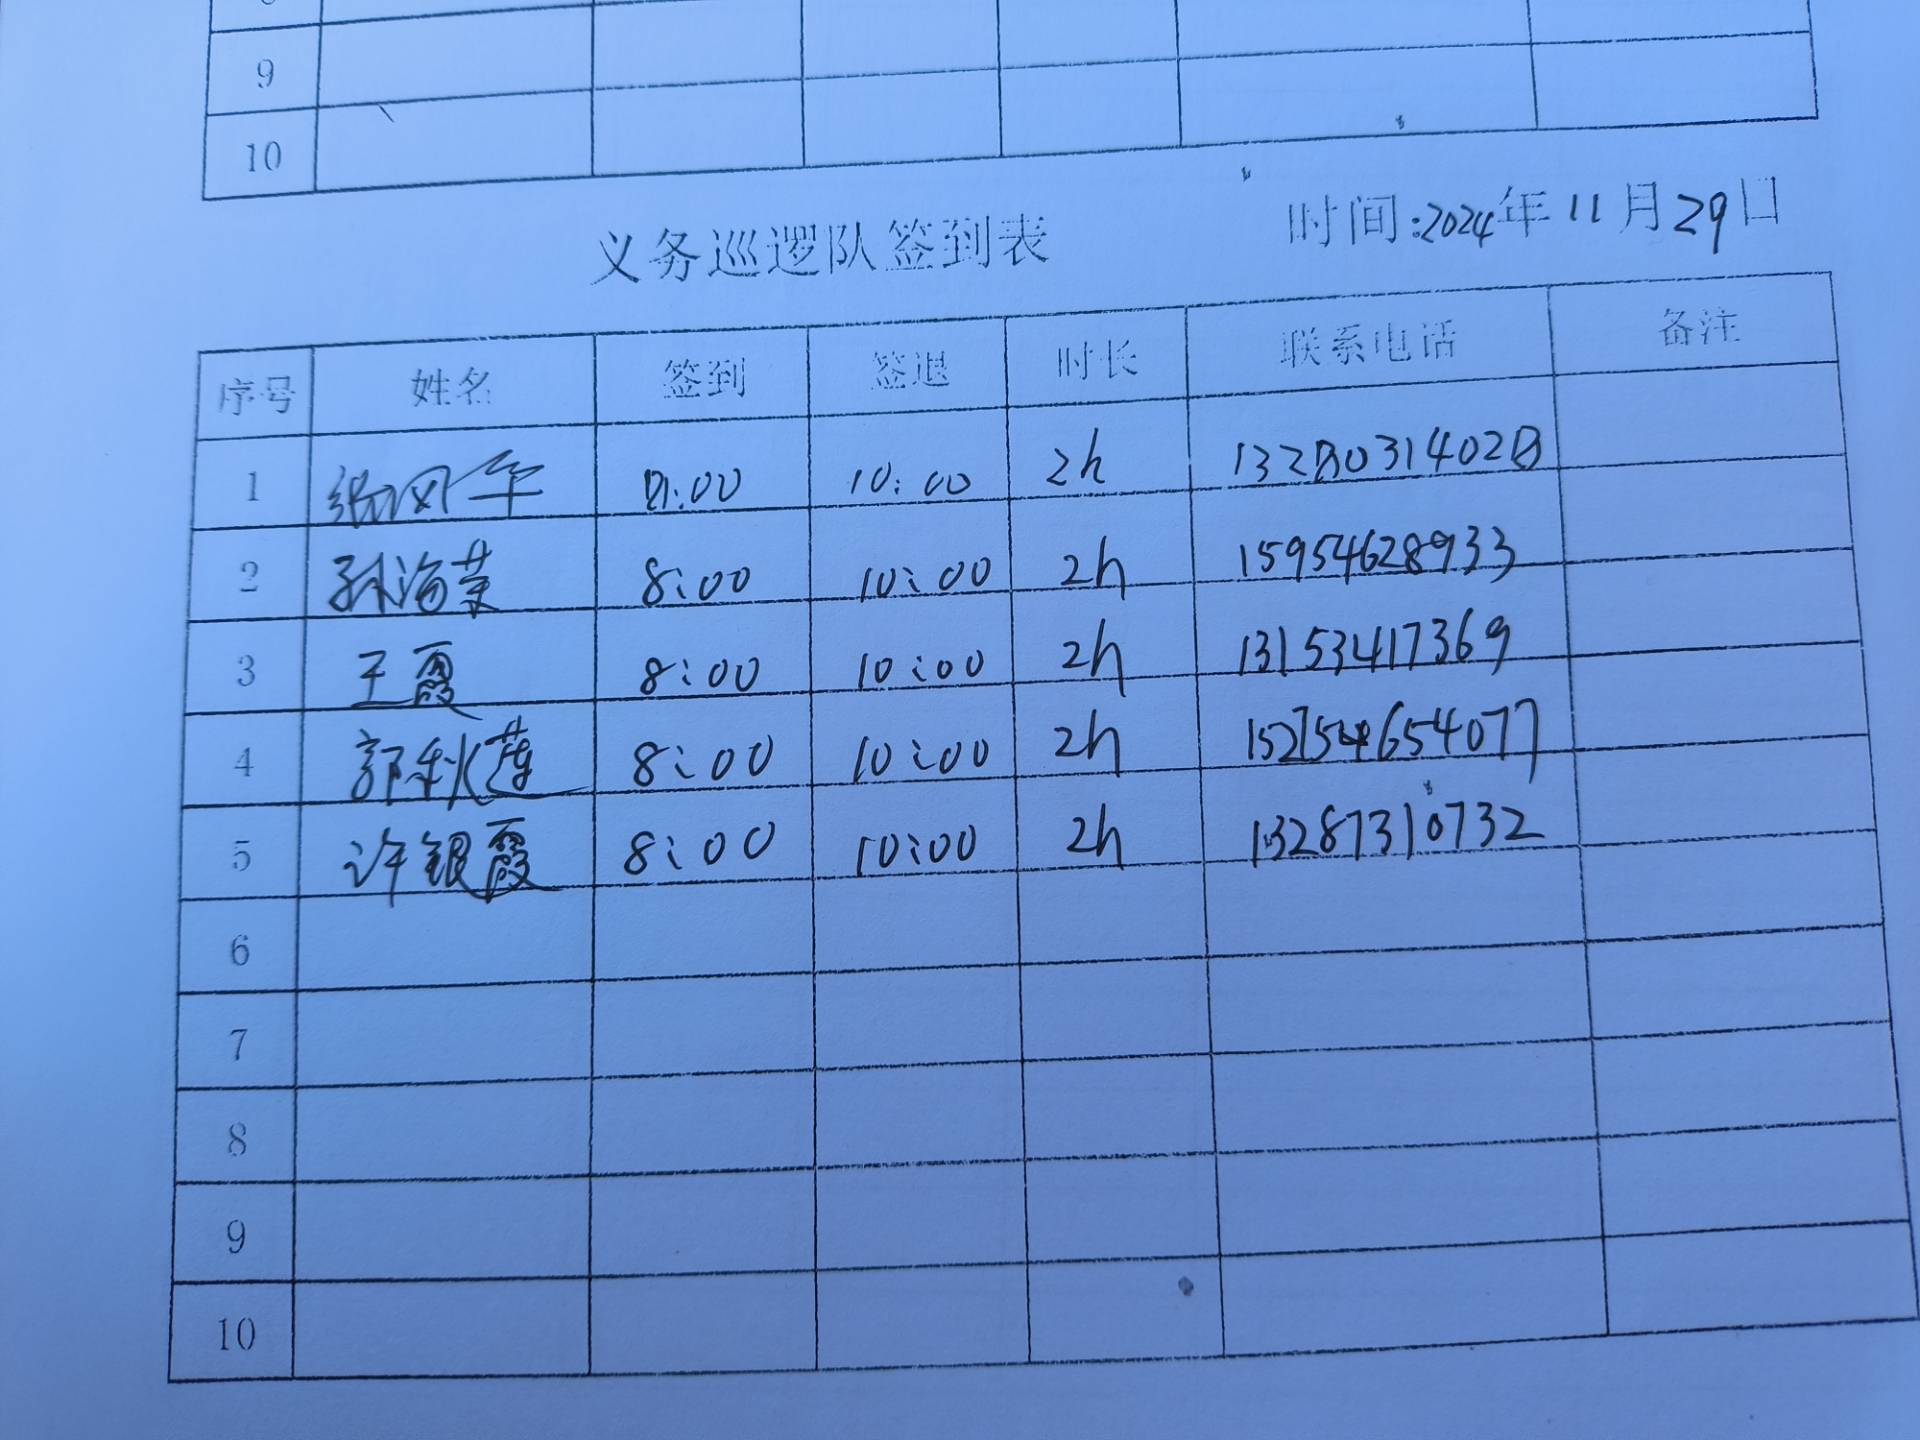 9
10
义务巡逻队签到表 时间:2024年11月29日
序号 姓名 签到 签退 时长 联系电话 备注
1 8:00 10:00 2h 13280314028
2 孙海荣 8:00 10:00 2h 15954628933
3 王霞 8:00 10:00 2h 13153417369
4 郭秋莲 8:00 10:00 2h
5 许银霞 8:00 10:00 2h 13287310732
6
7
8
9
10